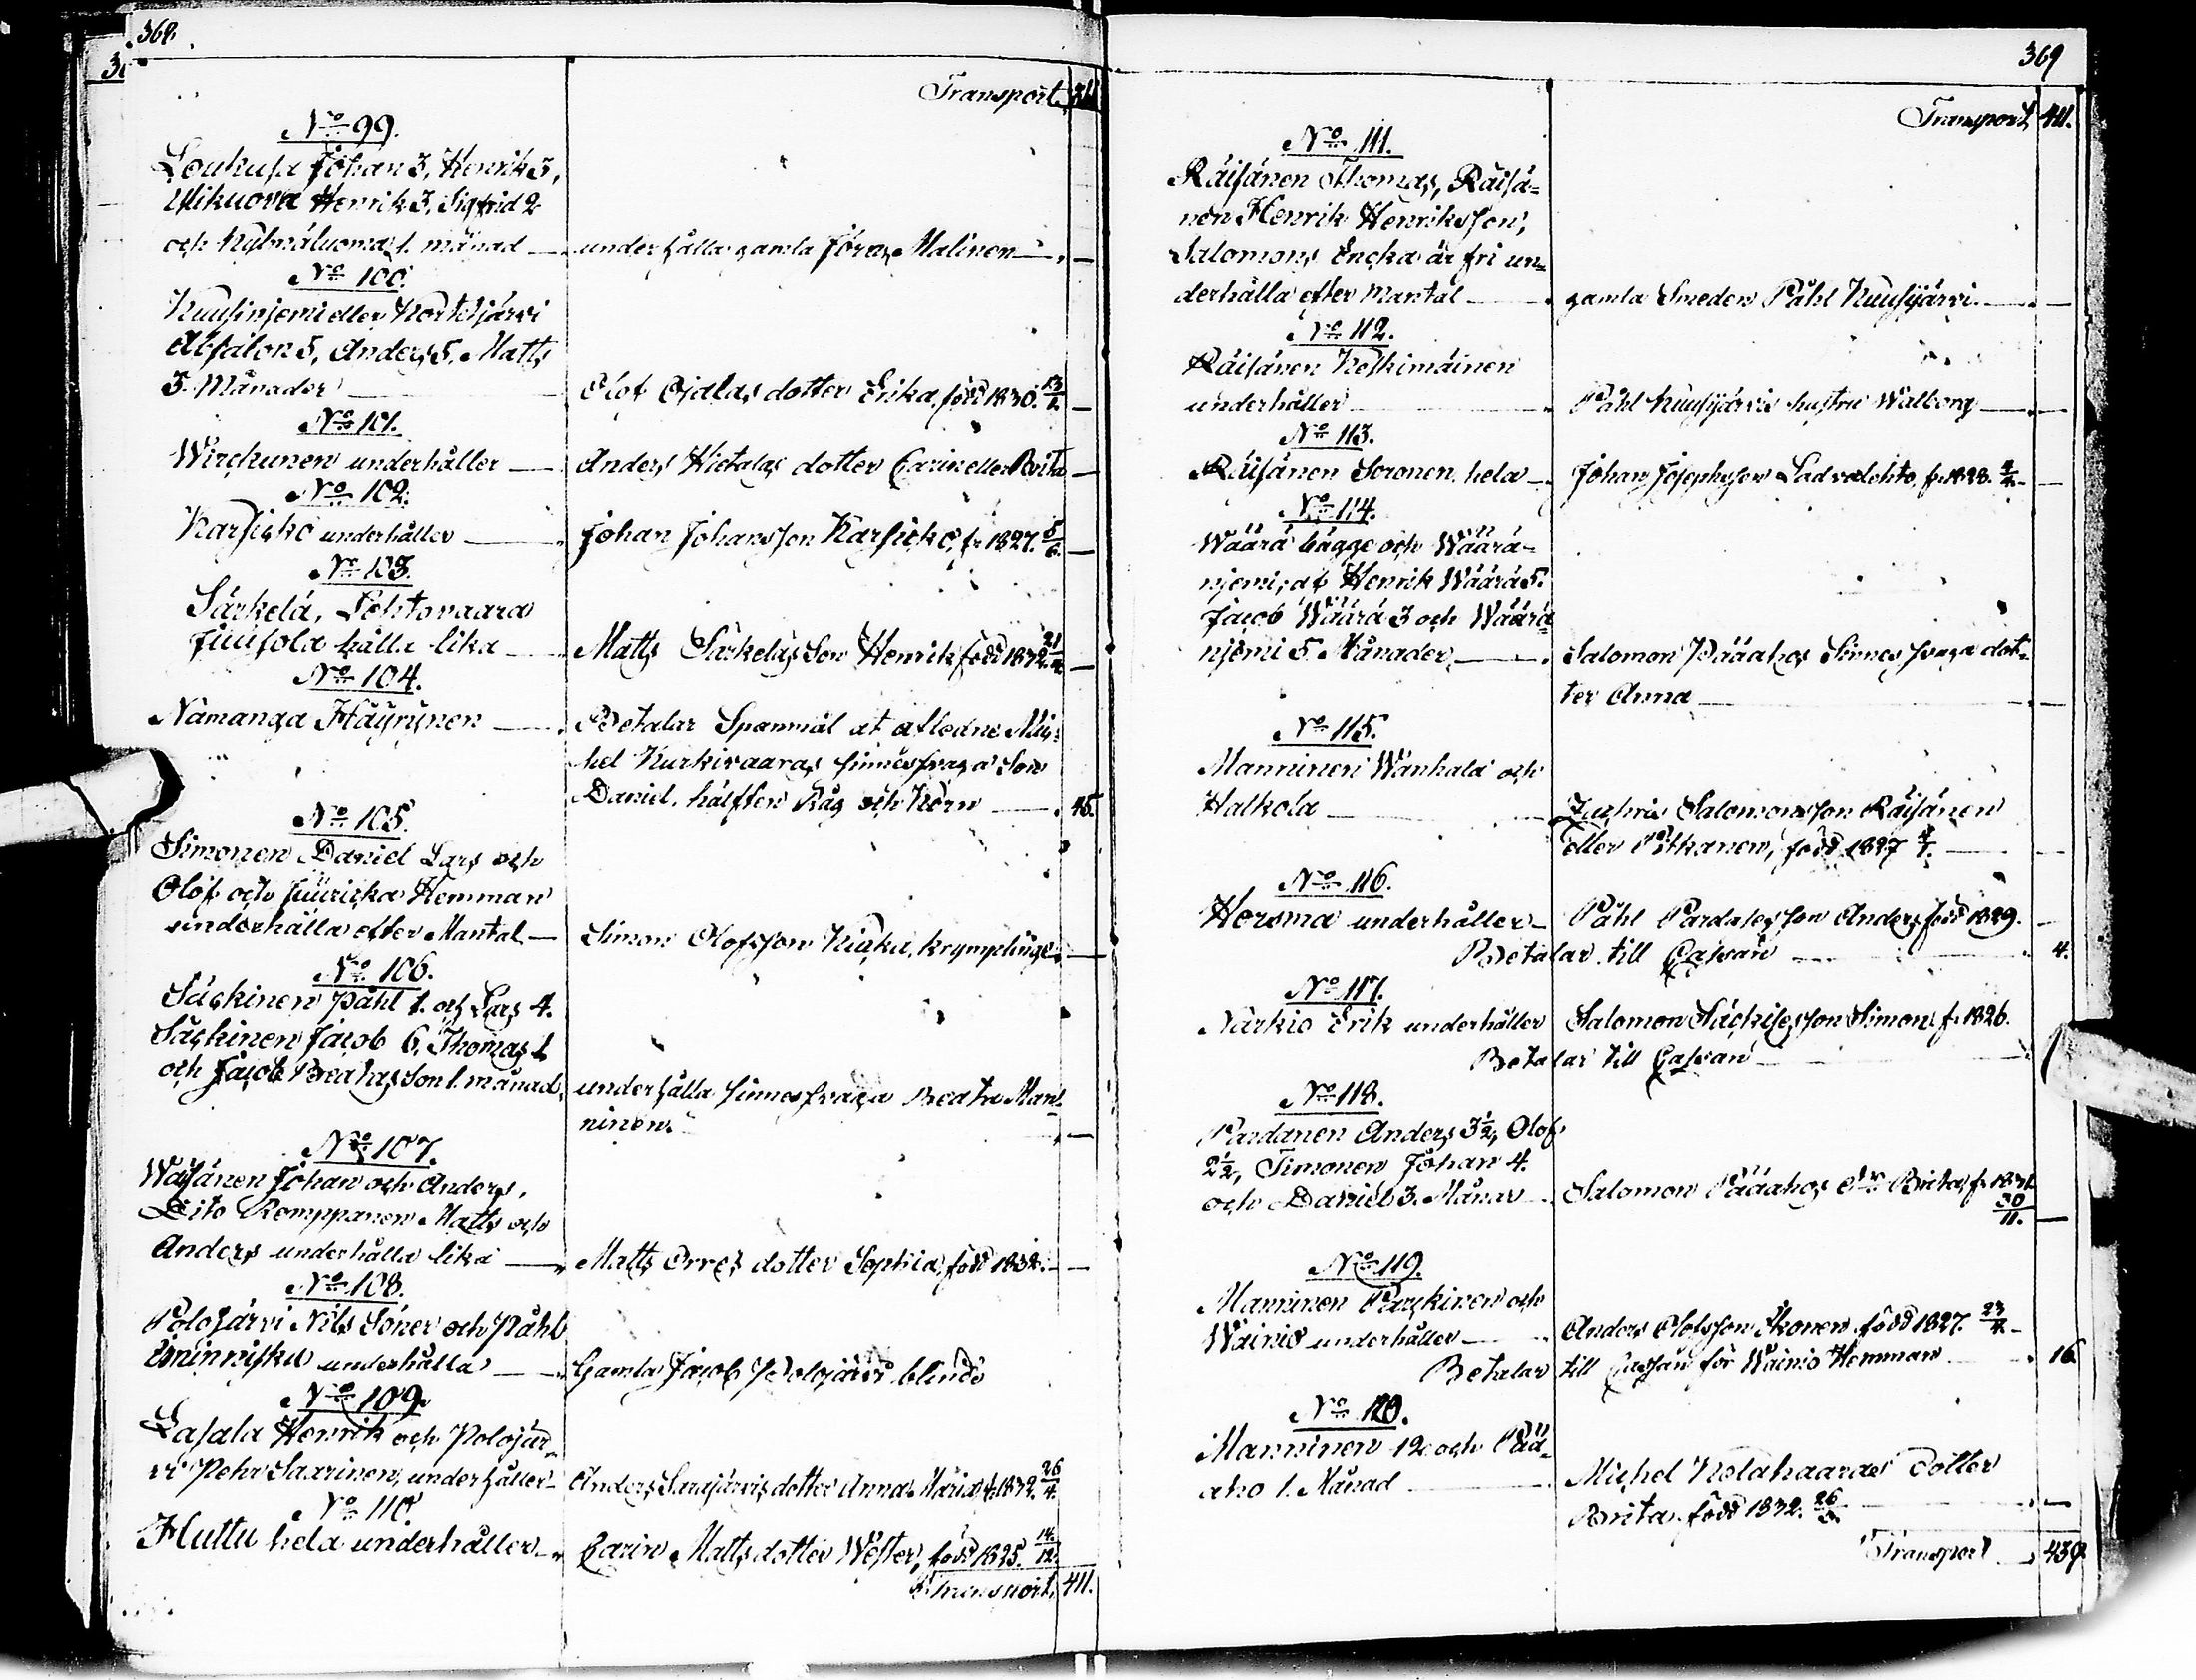 368.
Transport.
No 99.
Loukusa Johan 3, Henrik 3,
Ylikuova Henrik 3, Sigfrid 2
och Kylmäluoma 1. månad — underhålla gamla Jöras Malinen —
No 100.
Kuusinjemi eller
Absalon 5, Anders 5, Matts
3. Månader — Olof Ojalas dotter Erika, född 1830.
No 101.
Wirckunen underhåller — Anders Hietalas dotter Carin eller Brita —
No 102.
Karsicko underhåller — Johan Johansson Karsicko, f. 1827. 5/6. —
No 103.
Särkelä, Lehtovaara
Juusola hålla lika — Matts Särkeläs Son Henrik född 1832. —
No 104.
Nämanga Häyrynen — Betalar Spanmål at afledne Mic-
hel Kurkivaaras sinnesfraga Son
Daniel, hälften Råg och Korn — 45.
No 105.
Simonen Daniel Lars och
Olof och Juuricka Hemman
underhålla efter Mantal — Simon Olofsson krympling —
No 106.
Säckinen Påhl 1. och Lars 4.
Säckinen Jacob 6, Thomas 1
och Jacob Beatas Son 1. månad, underhålla sinnesfraga Beata Man-
ninen. —
No 107.
Wäisänen Johan och Anders,
Dito Romppanen Matts och
Anders underhålla lika — Matts Orres dotter Sophia, född 1832. —
No 108.
Polojärvi Nils Söner och Påhl
underhålla — Gamla Jacob Polojärvi blinde
No 109.
Lasala Henrik och Polojär-
vi Pehr Saarinen, underhåller — Anders Sarajärvis dotter Anna Maria f. 1832. 26/4.
No 110.
Huttu hela underhåller — Carin Mattsdotter Wester, född 1825. 14/12.
Transport. 411.
369
Transport 411.
No 111.
Räisänen Thomas, Räisä-
nen Henrik Henriksson,
Salomons Encka är fri un-
derhålla efter Mantal — gamla Smeden Påhl Kuusijärvi —
No 112.
Räisänen Kelkimäinen
underhåller — Påhl Kuusijärvis hustru Walborg —
No 113.
Räisänen Soronen hela — Johan Josephsson Ladvalehto, f. 1828. —
No 114.
Wäärä bägge och Wäärä-
njemi, af Henrik Wäärä 5.
Jacob Wäärä 3 och Wäärä-
njemi 5. Månader, — Salomon Pääahos Sinnes fraga dot-
ter Anna —
No 115.
Manninen Wanhala och
Halkola — Zachris Salomonsson Räisänen
eller Pitkänen, född 1827 —
No 116.
Horsma underhåller — Påhl Pardases son Anders född 1829. —
Betalar till Cassan — 4.
No 117.
Närkio Erik underhåller Salomon Säckises son Simon f. 1826.
Betalar till Cassan —
No 118.
Pardanen Anders 3½, Olof
2½, Timonen Johan 4.
och Daniel 3. Månar — Salomon Pääahos Brita, f. 1831.
30/11. —
No 119.
Manninen Parckinen och
Wäinio underhåller — Anders Olofsson Ikonen född 1827. —
Betalar till Cassan för Wäinio Hemman — 16.
No 120.
Manninen 12. och Pää-
aho 1. Månad — Michel Kelahaaras dotter
Brita, född 1832. —
Transport — 439